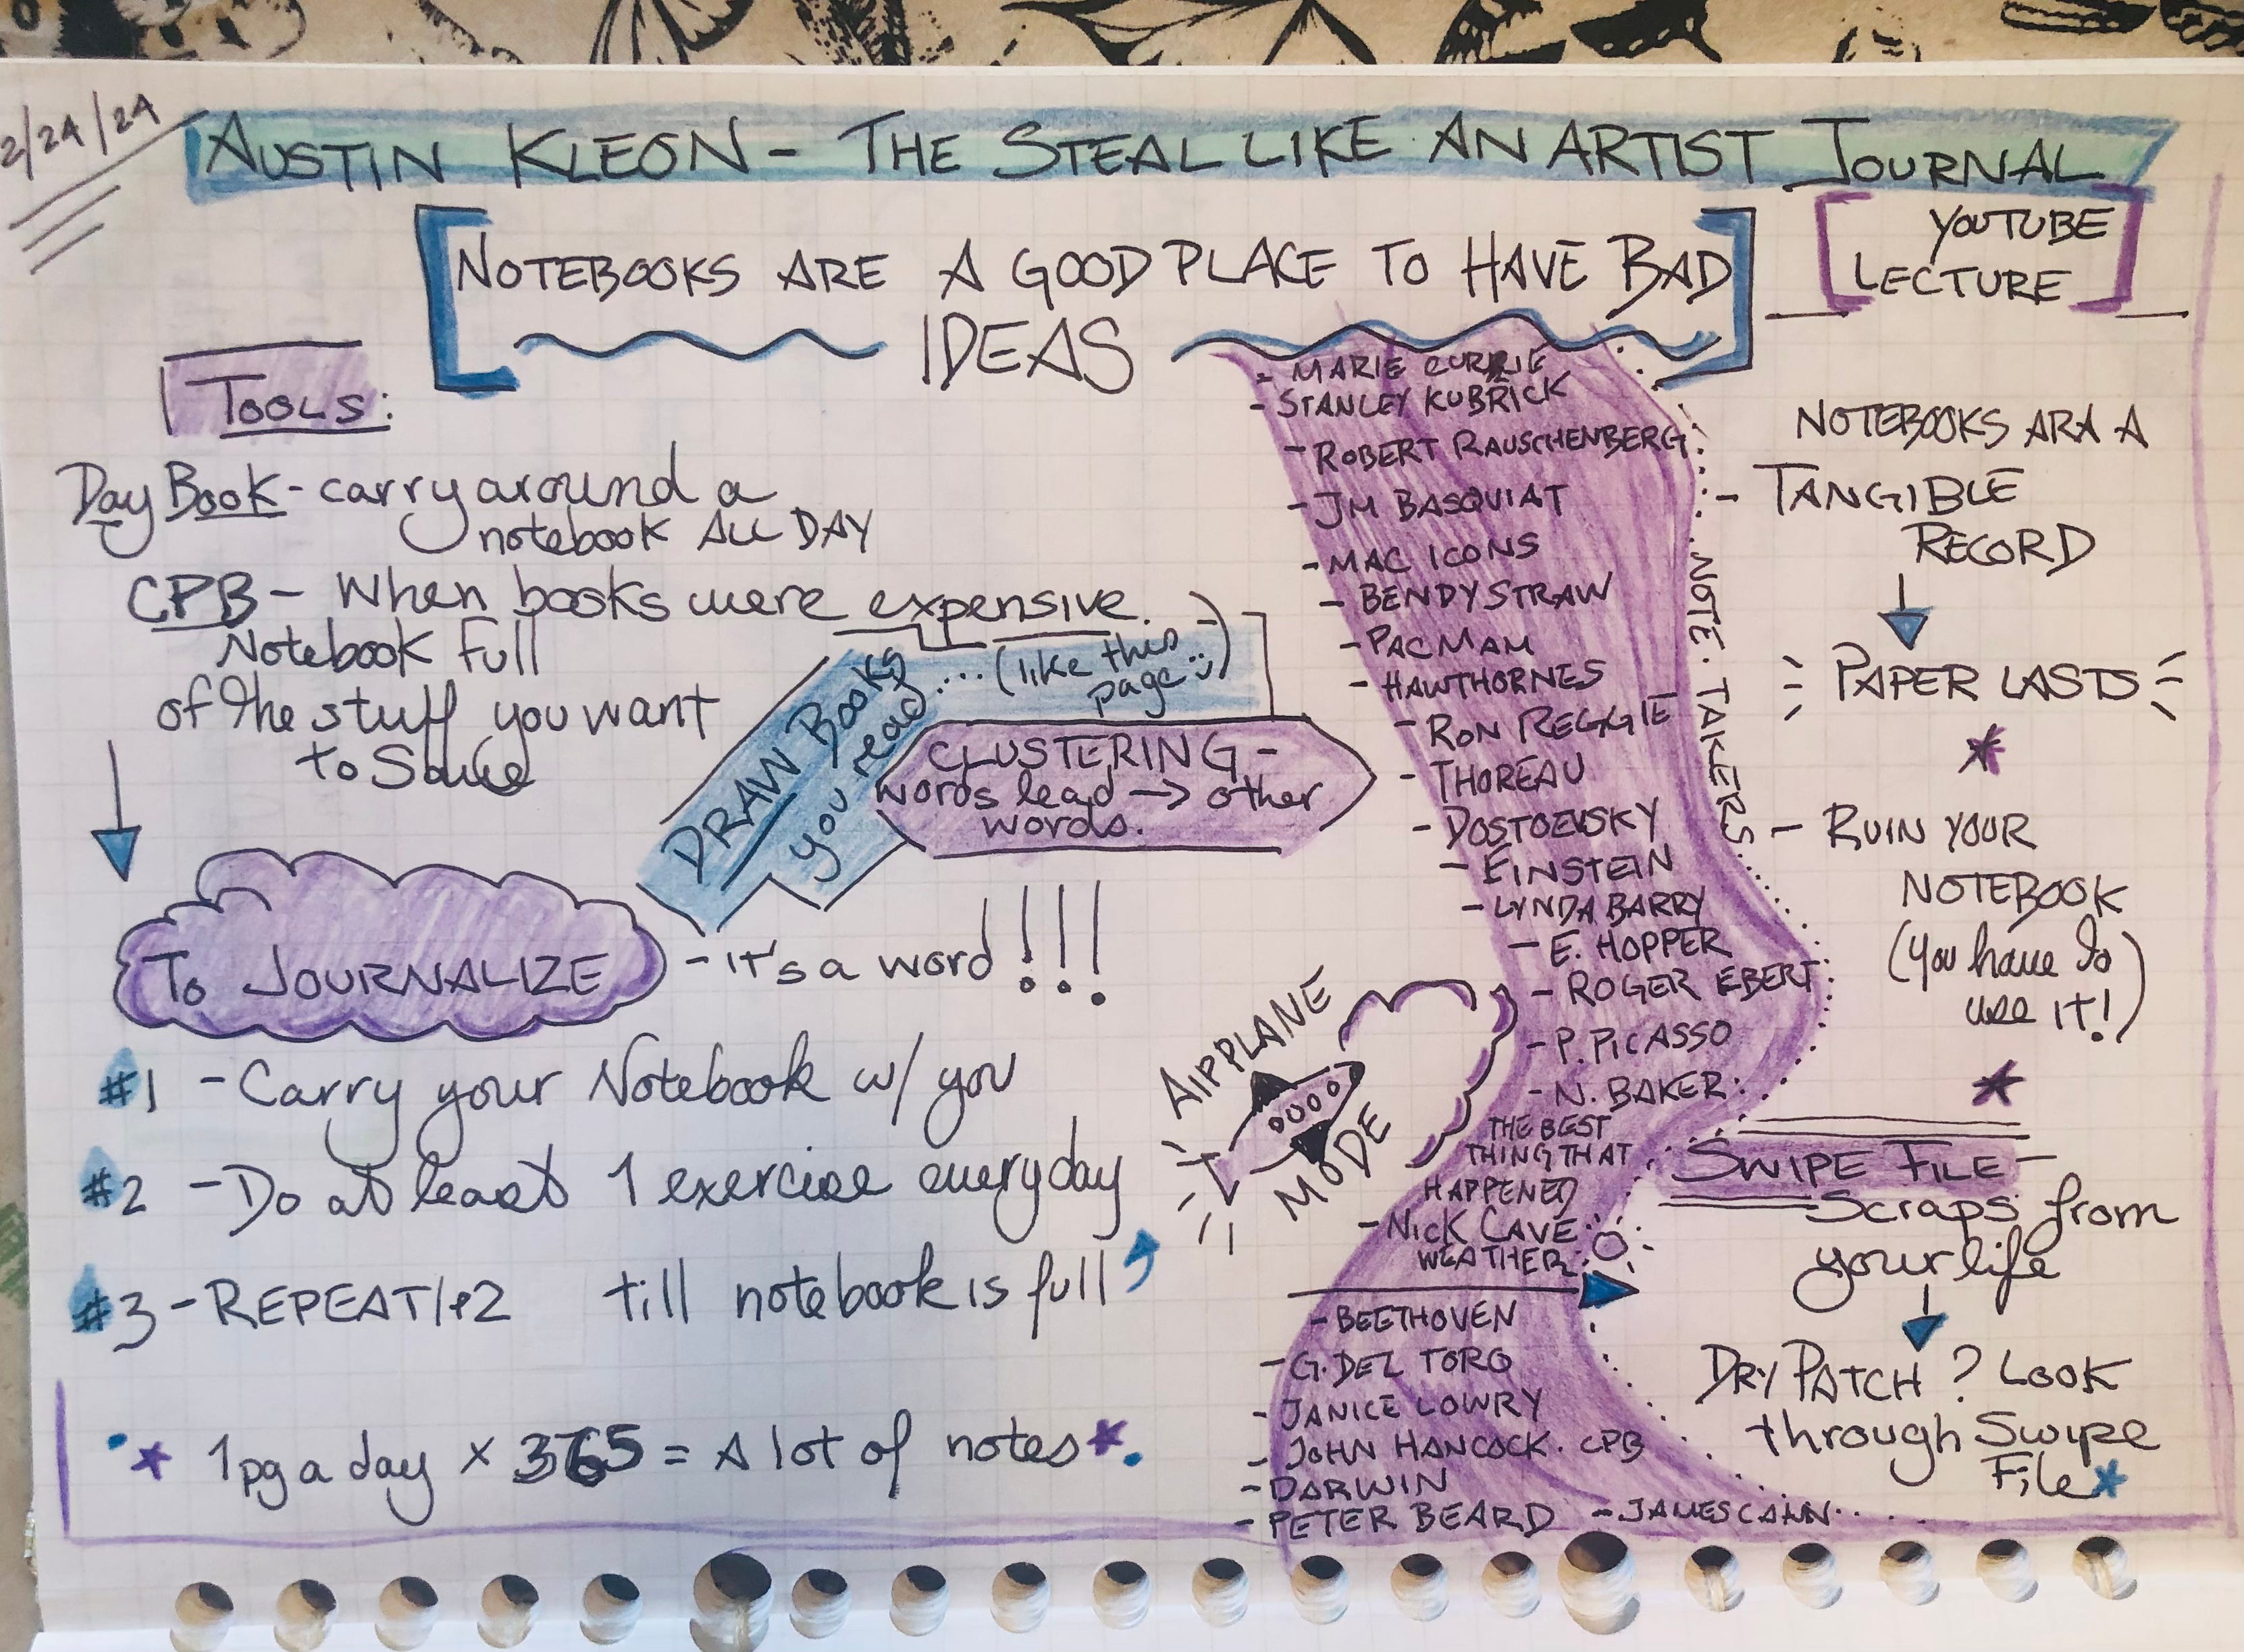 2/24/24
AUSTIN KLEON - THE STEAL LIKE AN ARTIST JOURNAL
[YOUTUBE
LECTURE]
[NOTEBOOKS ARE A GOOD PLACE TO HAVE BAD
IDEAS]
TOOLS:
Day Book - carry around a
notebook ALL DAY
CPB - When books were expensive.
Notebook Full
of the stuff you want
to
DRAW Books
you read....
(like this
page :)
CLUSTERING -
words lead → other
words.
To JOURNALIZE
- it's a word!!!
#1 - Carry your Notebook w/ you
#2 - Do at least 1 exercise everyday
#3 - REPEAT 1+2 till notebook is full
* 1pg a day x 365 = A lot of notes *
AIPPLANE
MODE
NOTE·TAKERS
- MARIE CURRIE
- STANLEY KUBRICK
- ROBERT RAUSCHENBERG
- JM BASQUIAT
- MAC ICONS
- BENDY STRAW
- PACMAM
- HAWTHORNES
- RON REGGIE
- THOREAU
- DOSTOEVSKY
- EINSTEIN
- LYNDA BARRY
- E. HOPPER
- ROGER EBERT
- P. PICASSO
- N. BAKER:
THE BEST
THING THAT
HAPPENED
- NICK CAVE
WEATHER:
- BEETHOVEN
- G. DEL TORO
- JANICE LOWRY
- JOHN HANCOCK. CPB
- DARWIN
- PETER BEARD - JAMES CAHN
NOTEBOOKS ARA A
- TANGIBLE
RECORD
PAPER LASTS
*
- RUIN YOUR
NOTEBOOK
(You have to
use it!)
*
SWIPE FILE -
Scraps from
your life
DRY PATCH? LOOK
through Swipe
File *